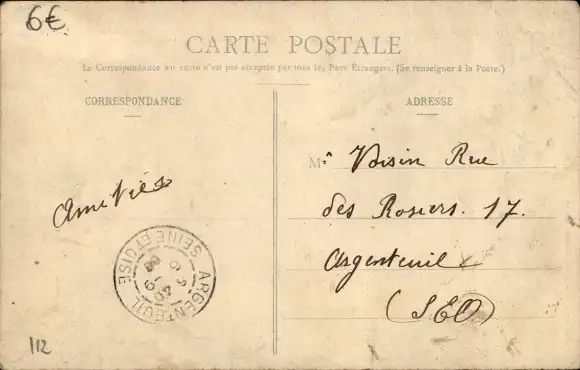 6€
CARTE POSTALE
La Correspondance au recto n'est pas acceptée par tous les Pays Étrangers. (Se renseigner à la Poste.)
CORRESPONDANCE
ADRESSE
Amitiés
M. Voisin Rue
des Rosiers. 17.
Argenteuil
(S&O)
ARGENTEUIL
SEINE ET OISE
112